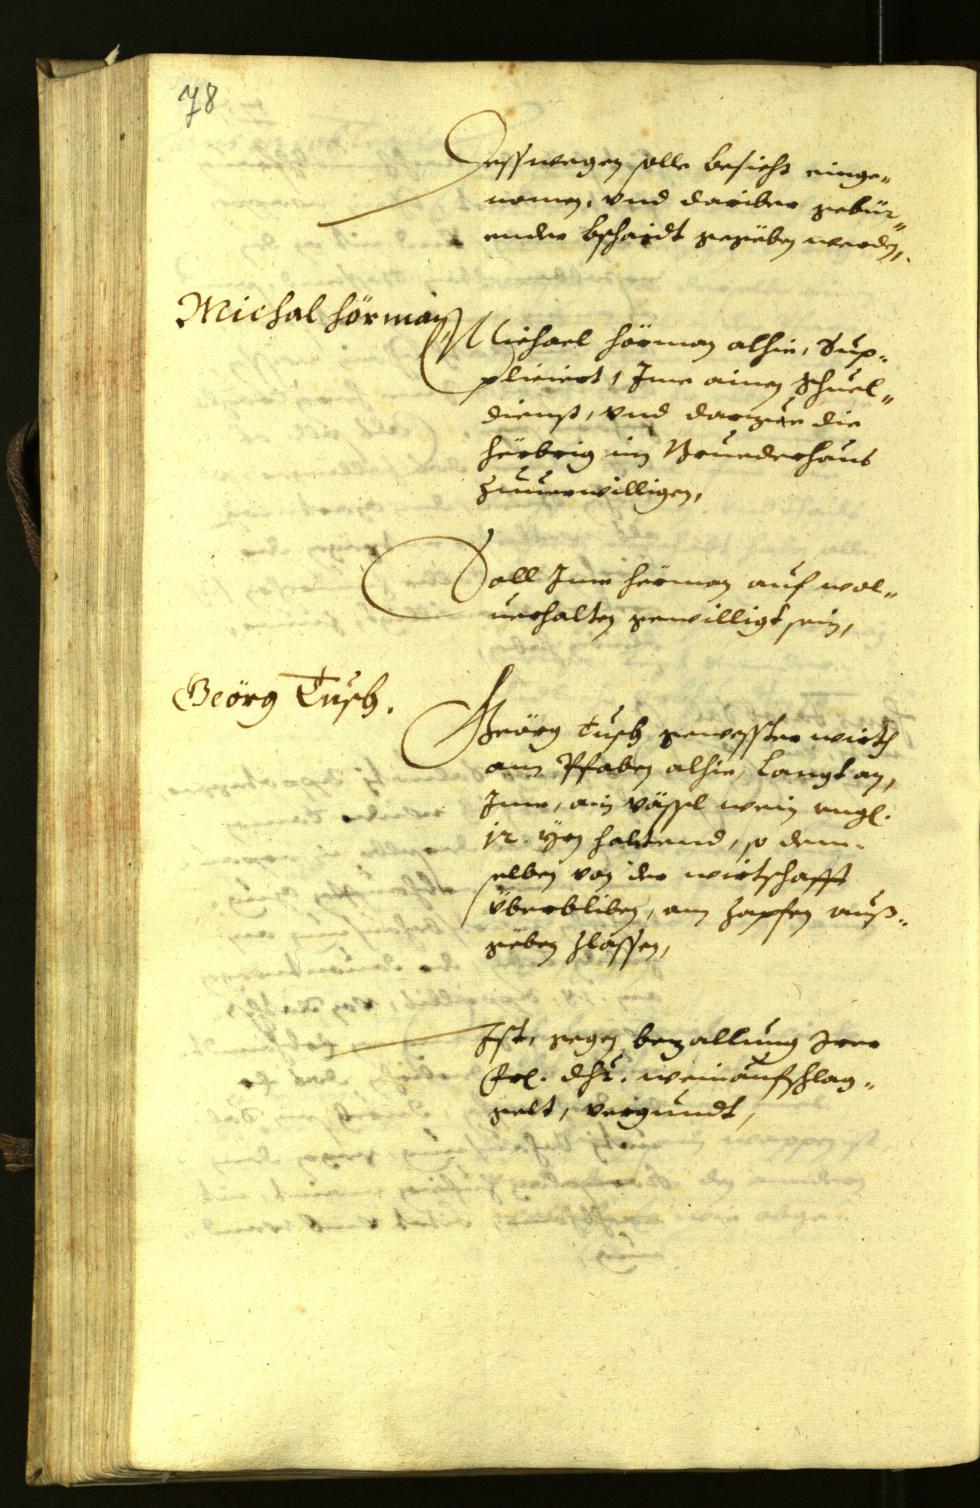 78
Desswegen solle besicht einge„
nomen, vnd dariber gebür„
ender bschaidt gegeben werden,.
Michal Hörman
Michael Hörman alhie, Sup„
pliciert, Ime ainen Schuel„
dienst, vnd darzue die
herbrig im Bruederhaus
zuuerwilligen,
Soll Ime Hörman auf wol„
uerhalten gewilligt sein,
Geörg Tusch.
Geörg Tusch gewesster wirth
am Pfaben alhie, langt an,
Ime, ain vässl wein
12. Yrn haltend, so dem„
selben von der wirtschafft
überbliben, am zapfen auß„
geben zlassen,
Ist, gegen bezallung Irer
Frl. Dht. weinaufschlag„
gelt, vergundt,